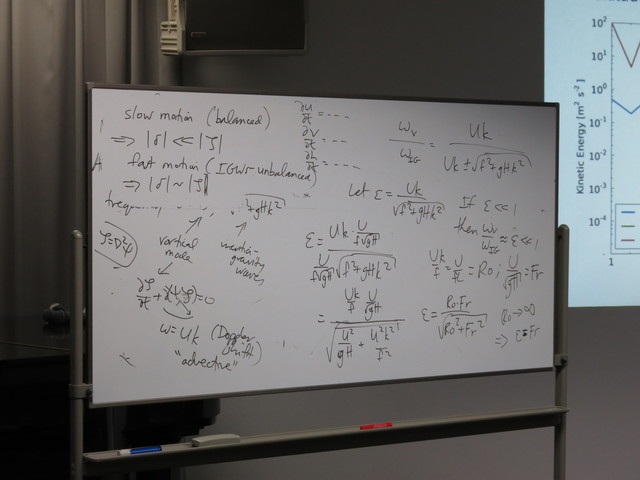 slow motion (balanced)
⇒ |δ| << |ζ|
fast motion (IGWs - unbalanced)
⇒ |δ| ~ |ζ|
+gHk²
ζ=∇²ψ
vortical mode
inertia-gravity waves
∂ζ/∂t + =0
ω=Uk (Doppler shift)
"advective"
∂u/∂t = ---
∂v/∂t = ---
∂h/∂t = ---
ω_V/ω_IG = Uk / Uk ± √f²+gHk²
Let ε = Uk/√f²+gHk² If ε << 1
then ω_V/ω_IG ≈ ε << 1
ε = Uk · U/f√gH / U/f√gH √f²+gHk²
= Uk/f U/√gH / √U²/gH + U²k²/f²
Uk/f = U/fL = Ro; U/√gH = Fr
ε = RoFr/√Ro²+Fr² Ro→∞
⇒ ε≈Fr
Kinetic Energy [m² s⁻²]
10²
10¹
10⁰
10⁻¹
10⁻²
10⁻³
10⁻⁴
1